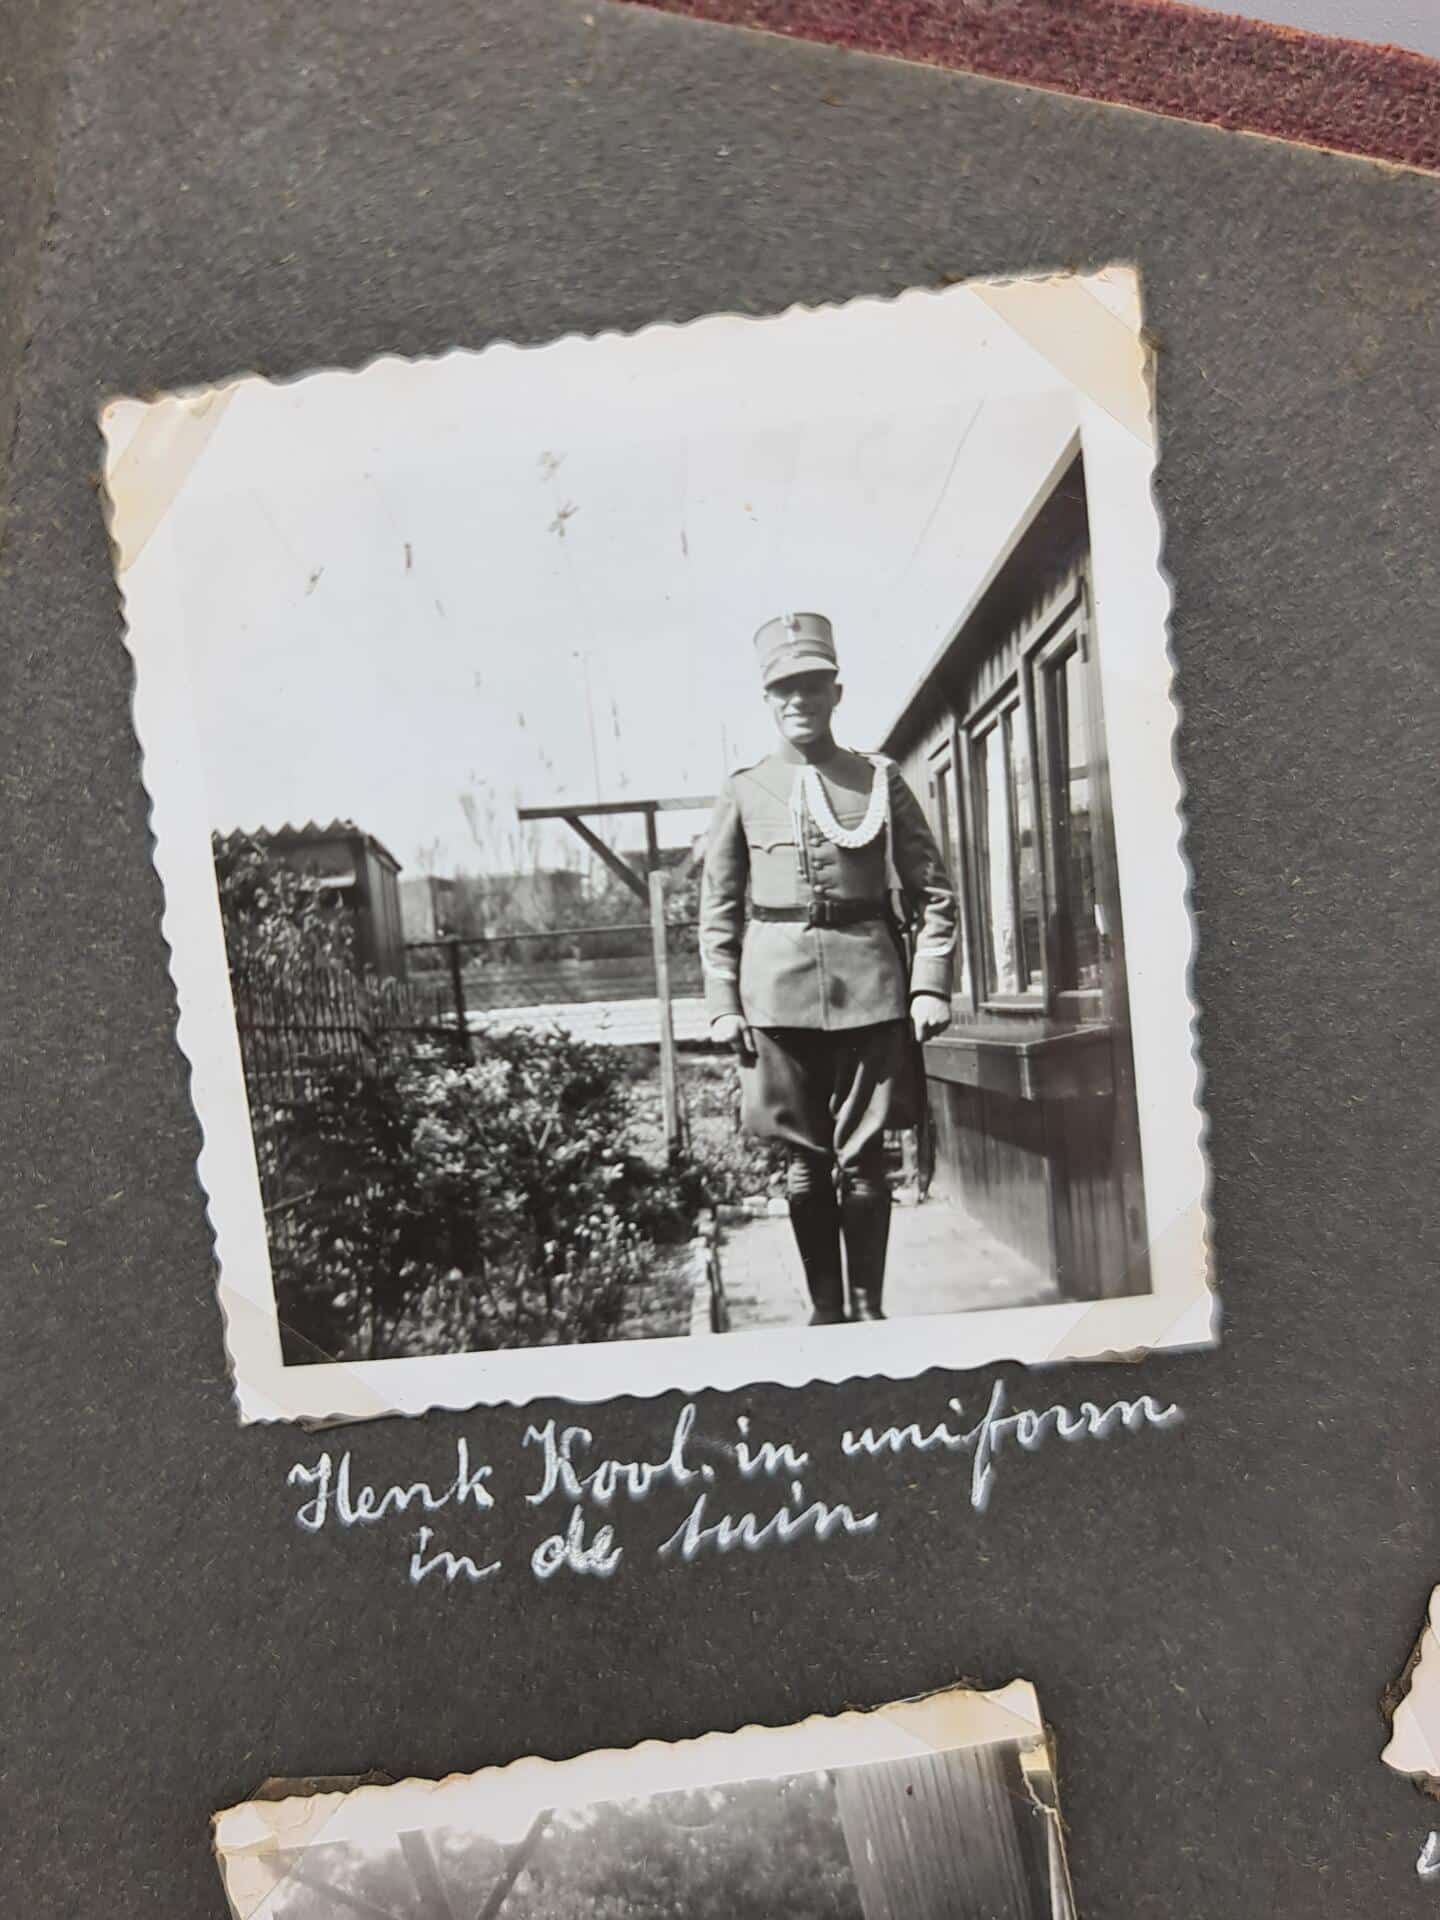 Henk Kool. in uniform
in de tuin